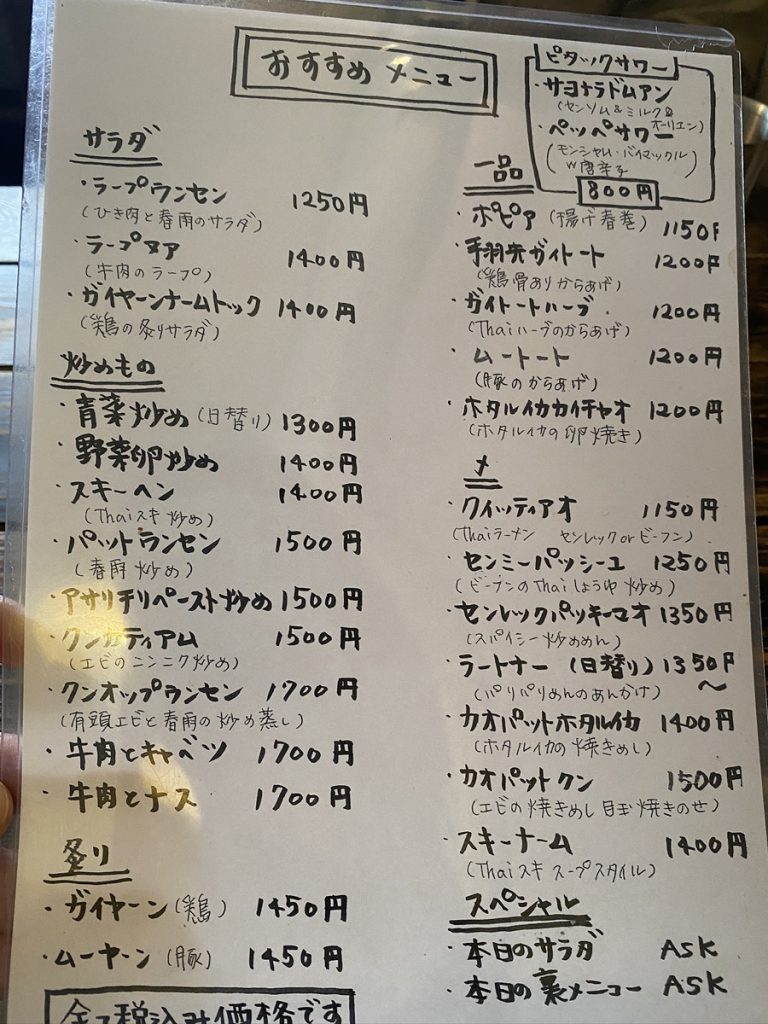 おすすめメニュー
サラダ
・ラープウンセン 1250円
(ひき肉と春雨のサラダ)
・ラープヌア 1400円
(牛肉のラープ)
・ガイヤーンナームトック 1400円
(鶏の炙りサラダ)
炒めもの
・青菜炒め(日替り) 1300円
・野菜卵炒め 1400円
・スキーヘン 1400円
(Thaiスキ炒め)
・パットウンセン 1500円
(春雨炒め)
・アサリチリペースト炒め 1500円
・クンガティアム 1500円
(エビのニンニク炒め)
・クンオップウンセン 1700円
(有頭エビと春雨の炒め蒸し)
・牛肉とキャベツ 1700円
・牛肉とナス 1700円
炙り
・ガイヤーン(鶏) 1450円
・ムーヤーン(豚) 1450円
全て税込み価格です
ピタックサワー
・サヨナラドムアン
(センソム&ミルク&
オーリエン)
・ペッペサワー
(モンシャム・バイマックル
W唐辛子)
800円
一品
・ポピア(揚げ春巻) 1150円
・手羽先ガイトート 1200円
(鶏骨ありからあげ)
・ガイトートハーブ 1200円
(Thaiハーブのからあげ)
・ムートート 1200円
(豚のからあげ)
・ホタルイカカイチャオ 1200円
(ホタルイカの卵焼き)
〆
・クイッティアオ 1150円
(Thaiラーメン センレックorビーフン)
・センミーパッシーユ 1250円
(ビーフンのThaiしょうゆ炒め)
・センレックパッキーマオ 1350円
(スパイシー炒めめん)
・ラートナー(日替り) 1350円〜
(パリパリめんのあんかけ)
・カオパットホタルイカ 1400円
(ホタルイカの焼きめし)
・カオパットクン 1500円
(エビの焼きめし目玉焼きのせ)
・スキーナーム 1400円
(Thaiスキ スープスタイル)
スペシャル
・本日のサラダ ASK
・本日の裏メニュー ASK